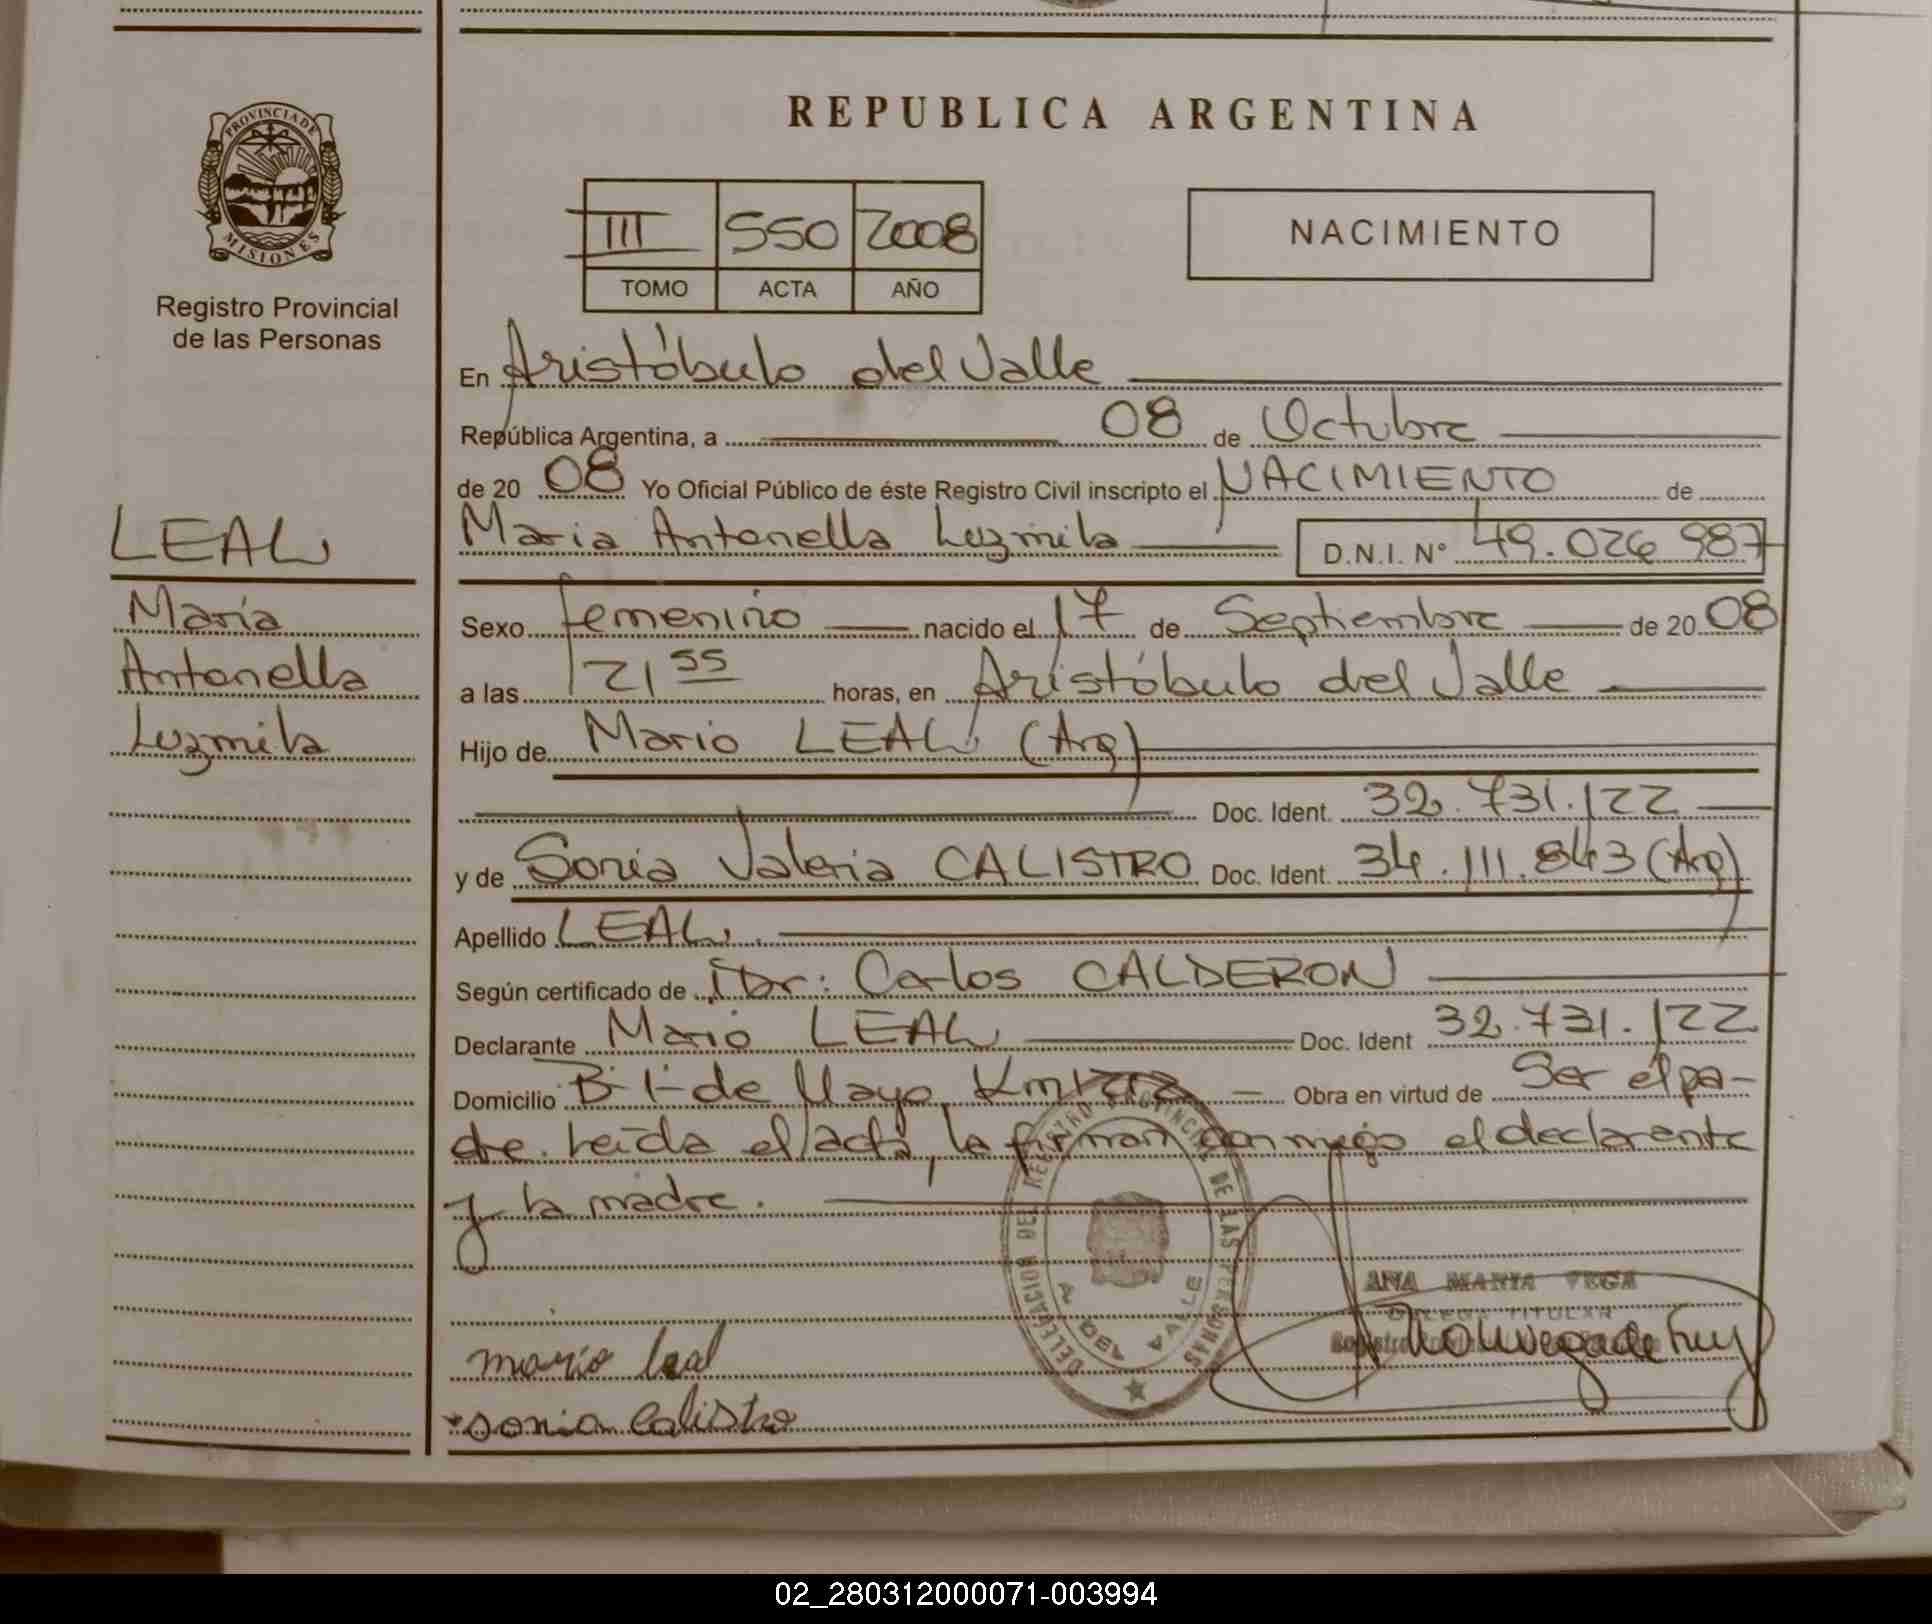 REPUBLICA ARGENTINA
PROVINCIA DE
MISIONES
Registro Provincial
de las Personas
III 550 2008
TOMO ACTA AÑO
NACIMIENTO
LEAL
María
Antonella
Luzmila
En Aristóbulo del Valle
República Argentina, a 08 de Octubre
de 20 08 Yo Oficial Público de éste Registro Civil inscripto el NACIMIENTO de
Maria Antonella Luzmila D.N.I. Nº 49.026.987
Sexo femenino nacido el 17 de Septiembre de 20 08
a las 21 55 horas, en Aristóbulo del Valle
Hijo de Mario LEAL (Arg)
Doc. Ident. 32.731.122
y de Sonia Valeria CALISTRO Doc. Ident. 34.111.843 (Arg)
Apellido LEAL
Según certificado de Dr: Carlos CALDERON
Declarante Mario LEAL Doc. Ident 32.731.122
Domicilio Bº 1º de Mayo Obra en virtud de Ser el pa-
dre. Leída el acta, la firman conmigo el declarante
y la madre.
DELEGACION DEL REGISTRO PROVINCIAL DE LAS PERSONAS
VALLE
ANA MARIA VEGA
TITULAR
mario leal
sonia Calistro
02_280312000071-003994